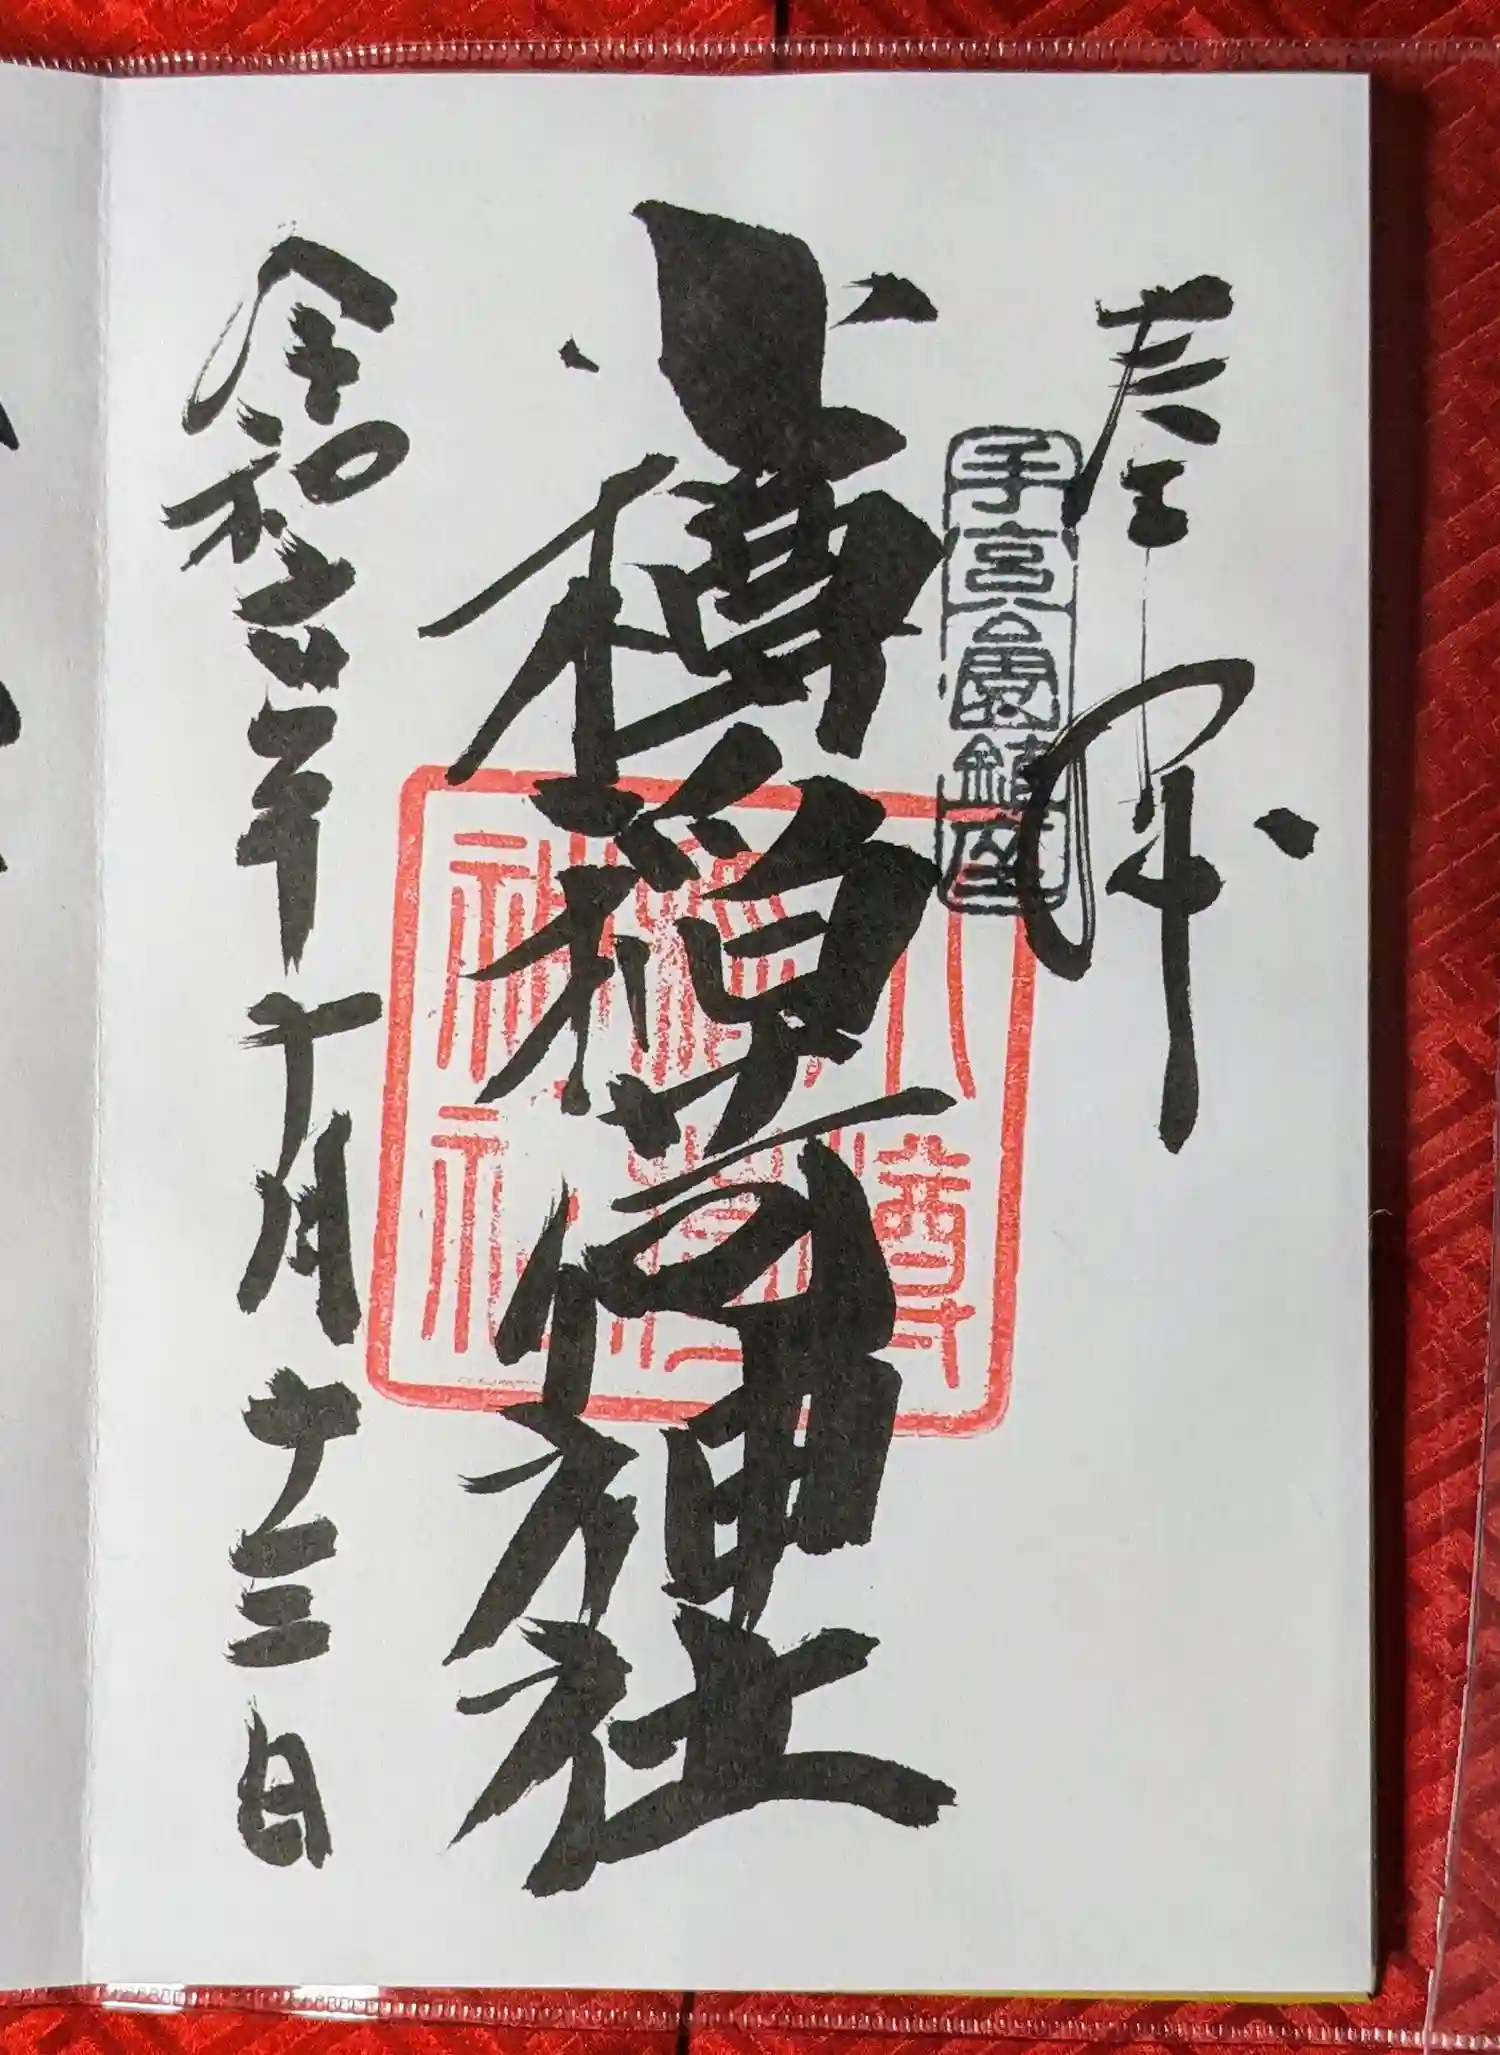 奉拝
手宮公園鎮座
小樽稲荷神社
小樽
稲荷
神社
令和六年十月十三日